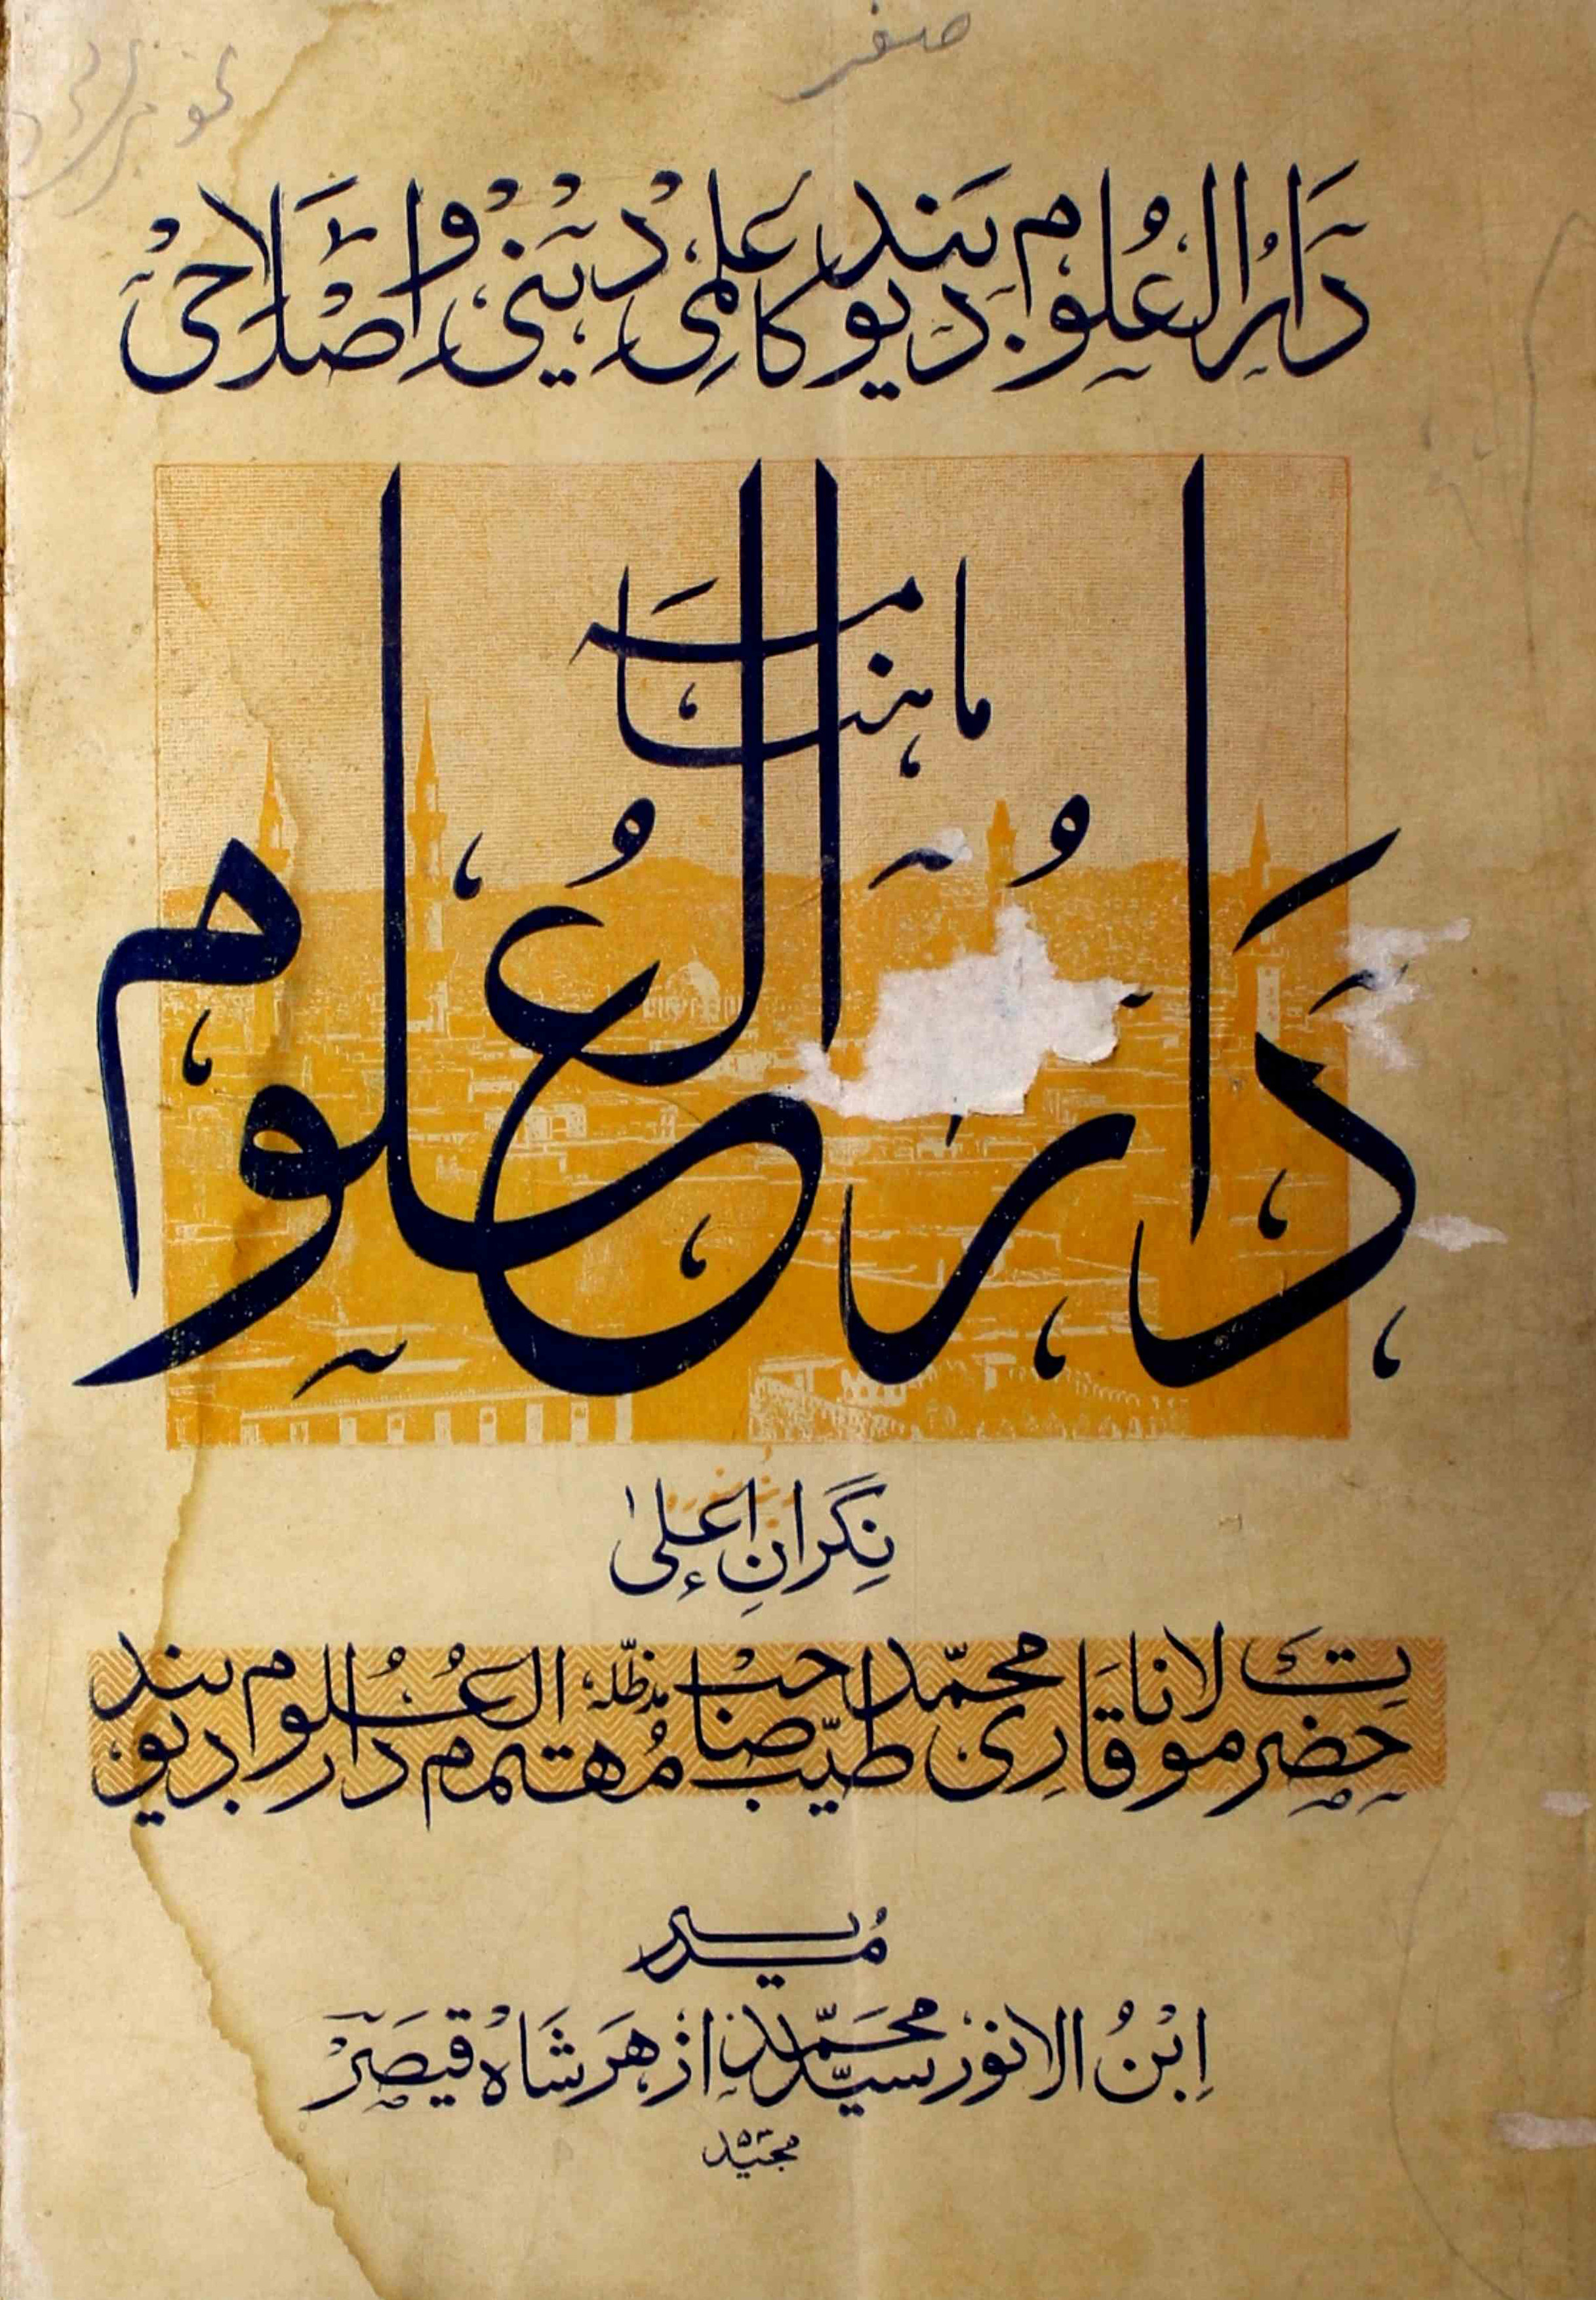 صفر
دَارُالعُلوم دیوبَند کا عِلمی دِینی و اِصلَاحی
ماہنامَہ
دَارُالعُلوم
نِگرانِ اعلیٰ
حضرت مولانا قاری محمّد طیّب صاحب مدظلہ، مُہتمم دارالعُلوم دیوبند
مُدیر
اِبنُ الانور سیّد محمّد ازہَر شَاہ قیصَر